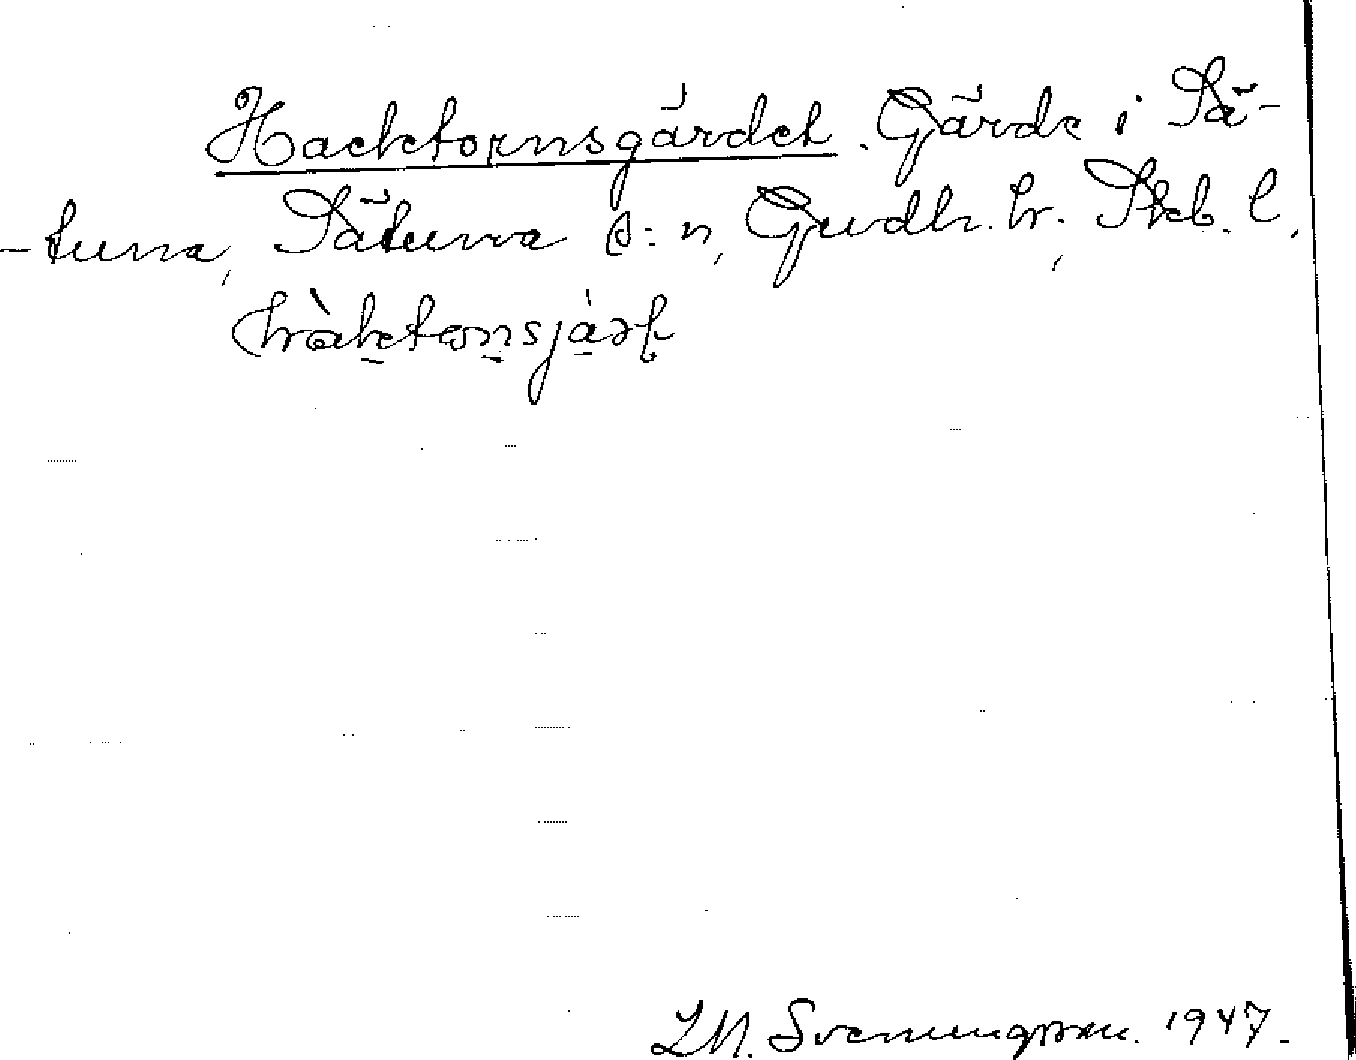 Hacktornsgärdet. Gärde i Sä-
-tuna, Sätuna s:n, Gudh. hr., Skb. l.
hàktọnsjàrt
L.M. Svenungsson. 1947.